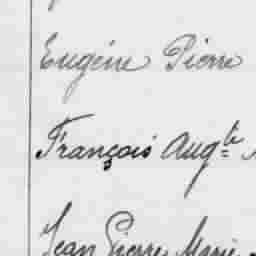 Eugène Pierre
François Aug.te
Jean Pierre Marie